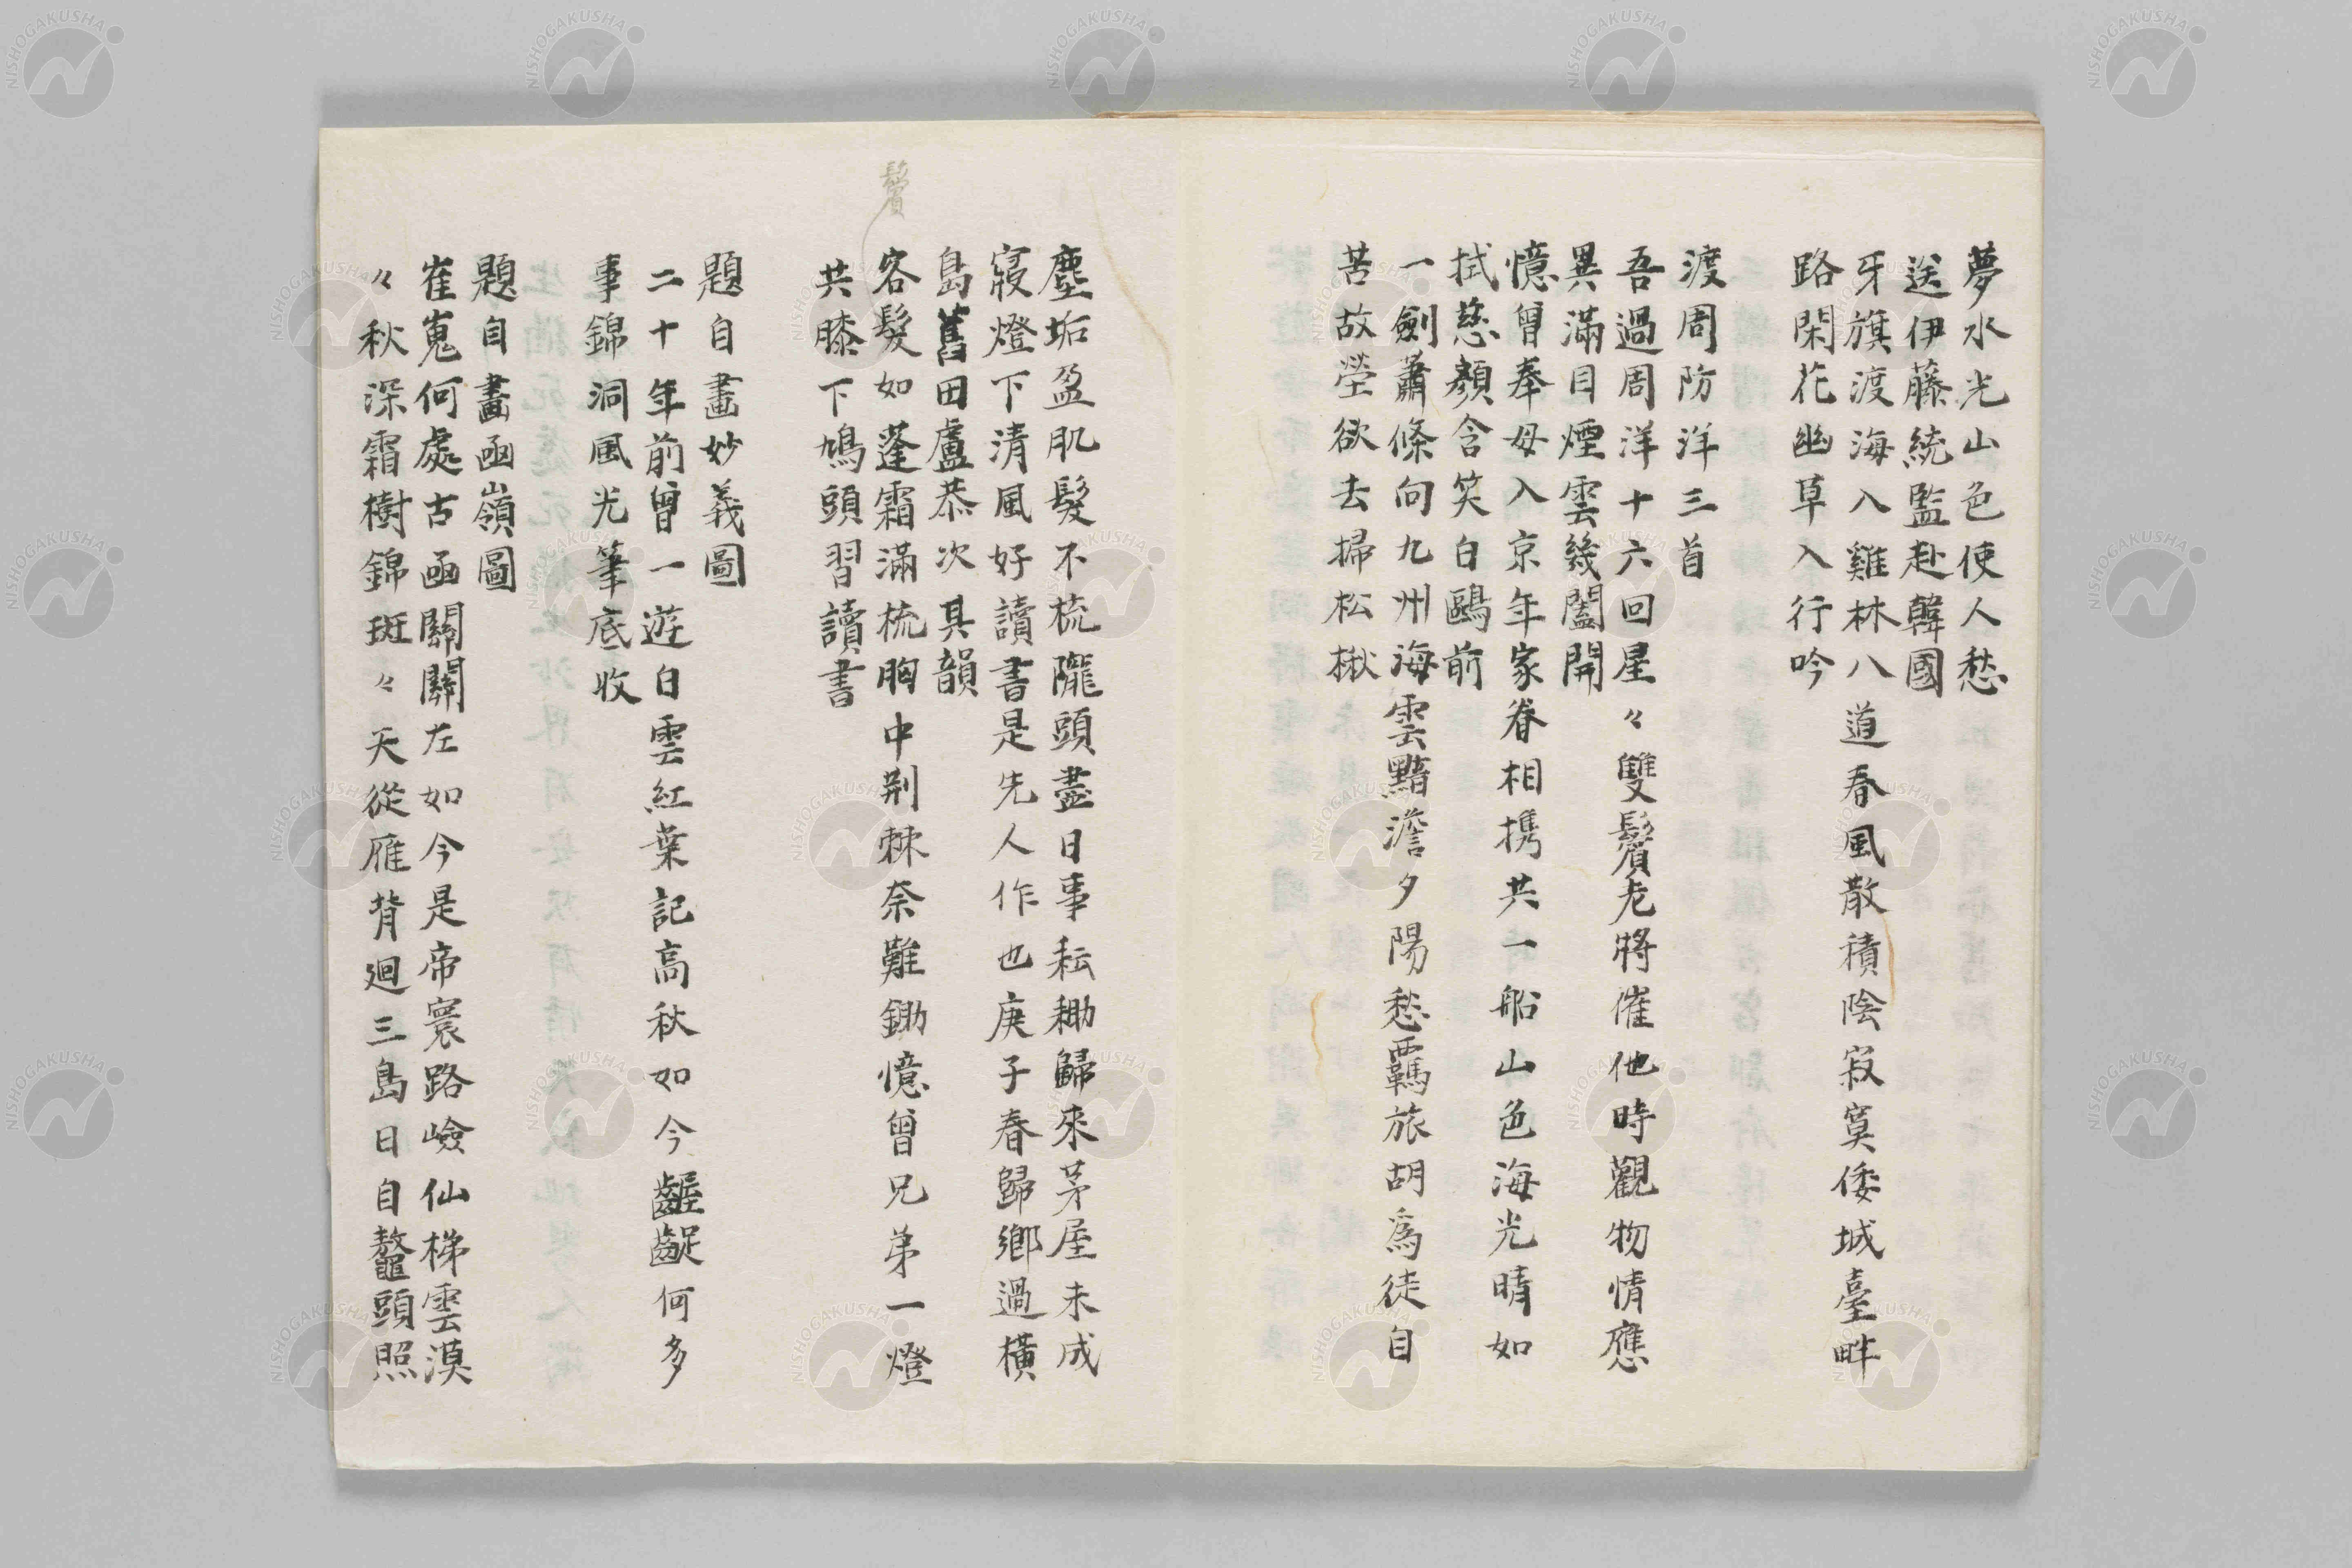 夢水光山色使人愁
送伊藤統監赴韓國
牙旗渡海入雞林八道春風散積陰寂寞倭城臺畔
路閑花幽草入行吟
渡周防洋三首
吾過周洋十六回星々雙鬢老將催他時觀物情應
異滿目煙雲幾闔開
憶曾奉母入京年家眷相携共一船山色海光晴如
拭慈顏含笑白鷗前
一劍蕭條向九州海雲黯澹夕陽愁羈旅胡爲徒自
苦故塋欲去掃松楸
塵垢盈肌髮不梳隴頭盡日事耘耡歸來茅屋未成
寢燈下清風好讀書是先人作也庚子春歸鄉過橫
島舊田廬恭次其韻
容髮如蓬霜滿梳胸中荆棘奈難鋤憶曾兄弟一燈
共膝下鳩頭習讀書
鬢
題自畫妙義圖
二十年前曾一遊白雲紅葉記高秋如今齷齪何多
事錦洞風光筆底收
題自畫函嶺圖
崔嵬何處古函關關左如今是帝寰路嶮仙梯雲漠
々秋深霜樹錦斑々天從雁背廻三島日自鼇頭照
NISHOGAKUSHA